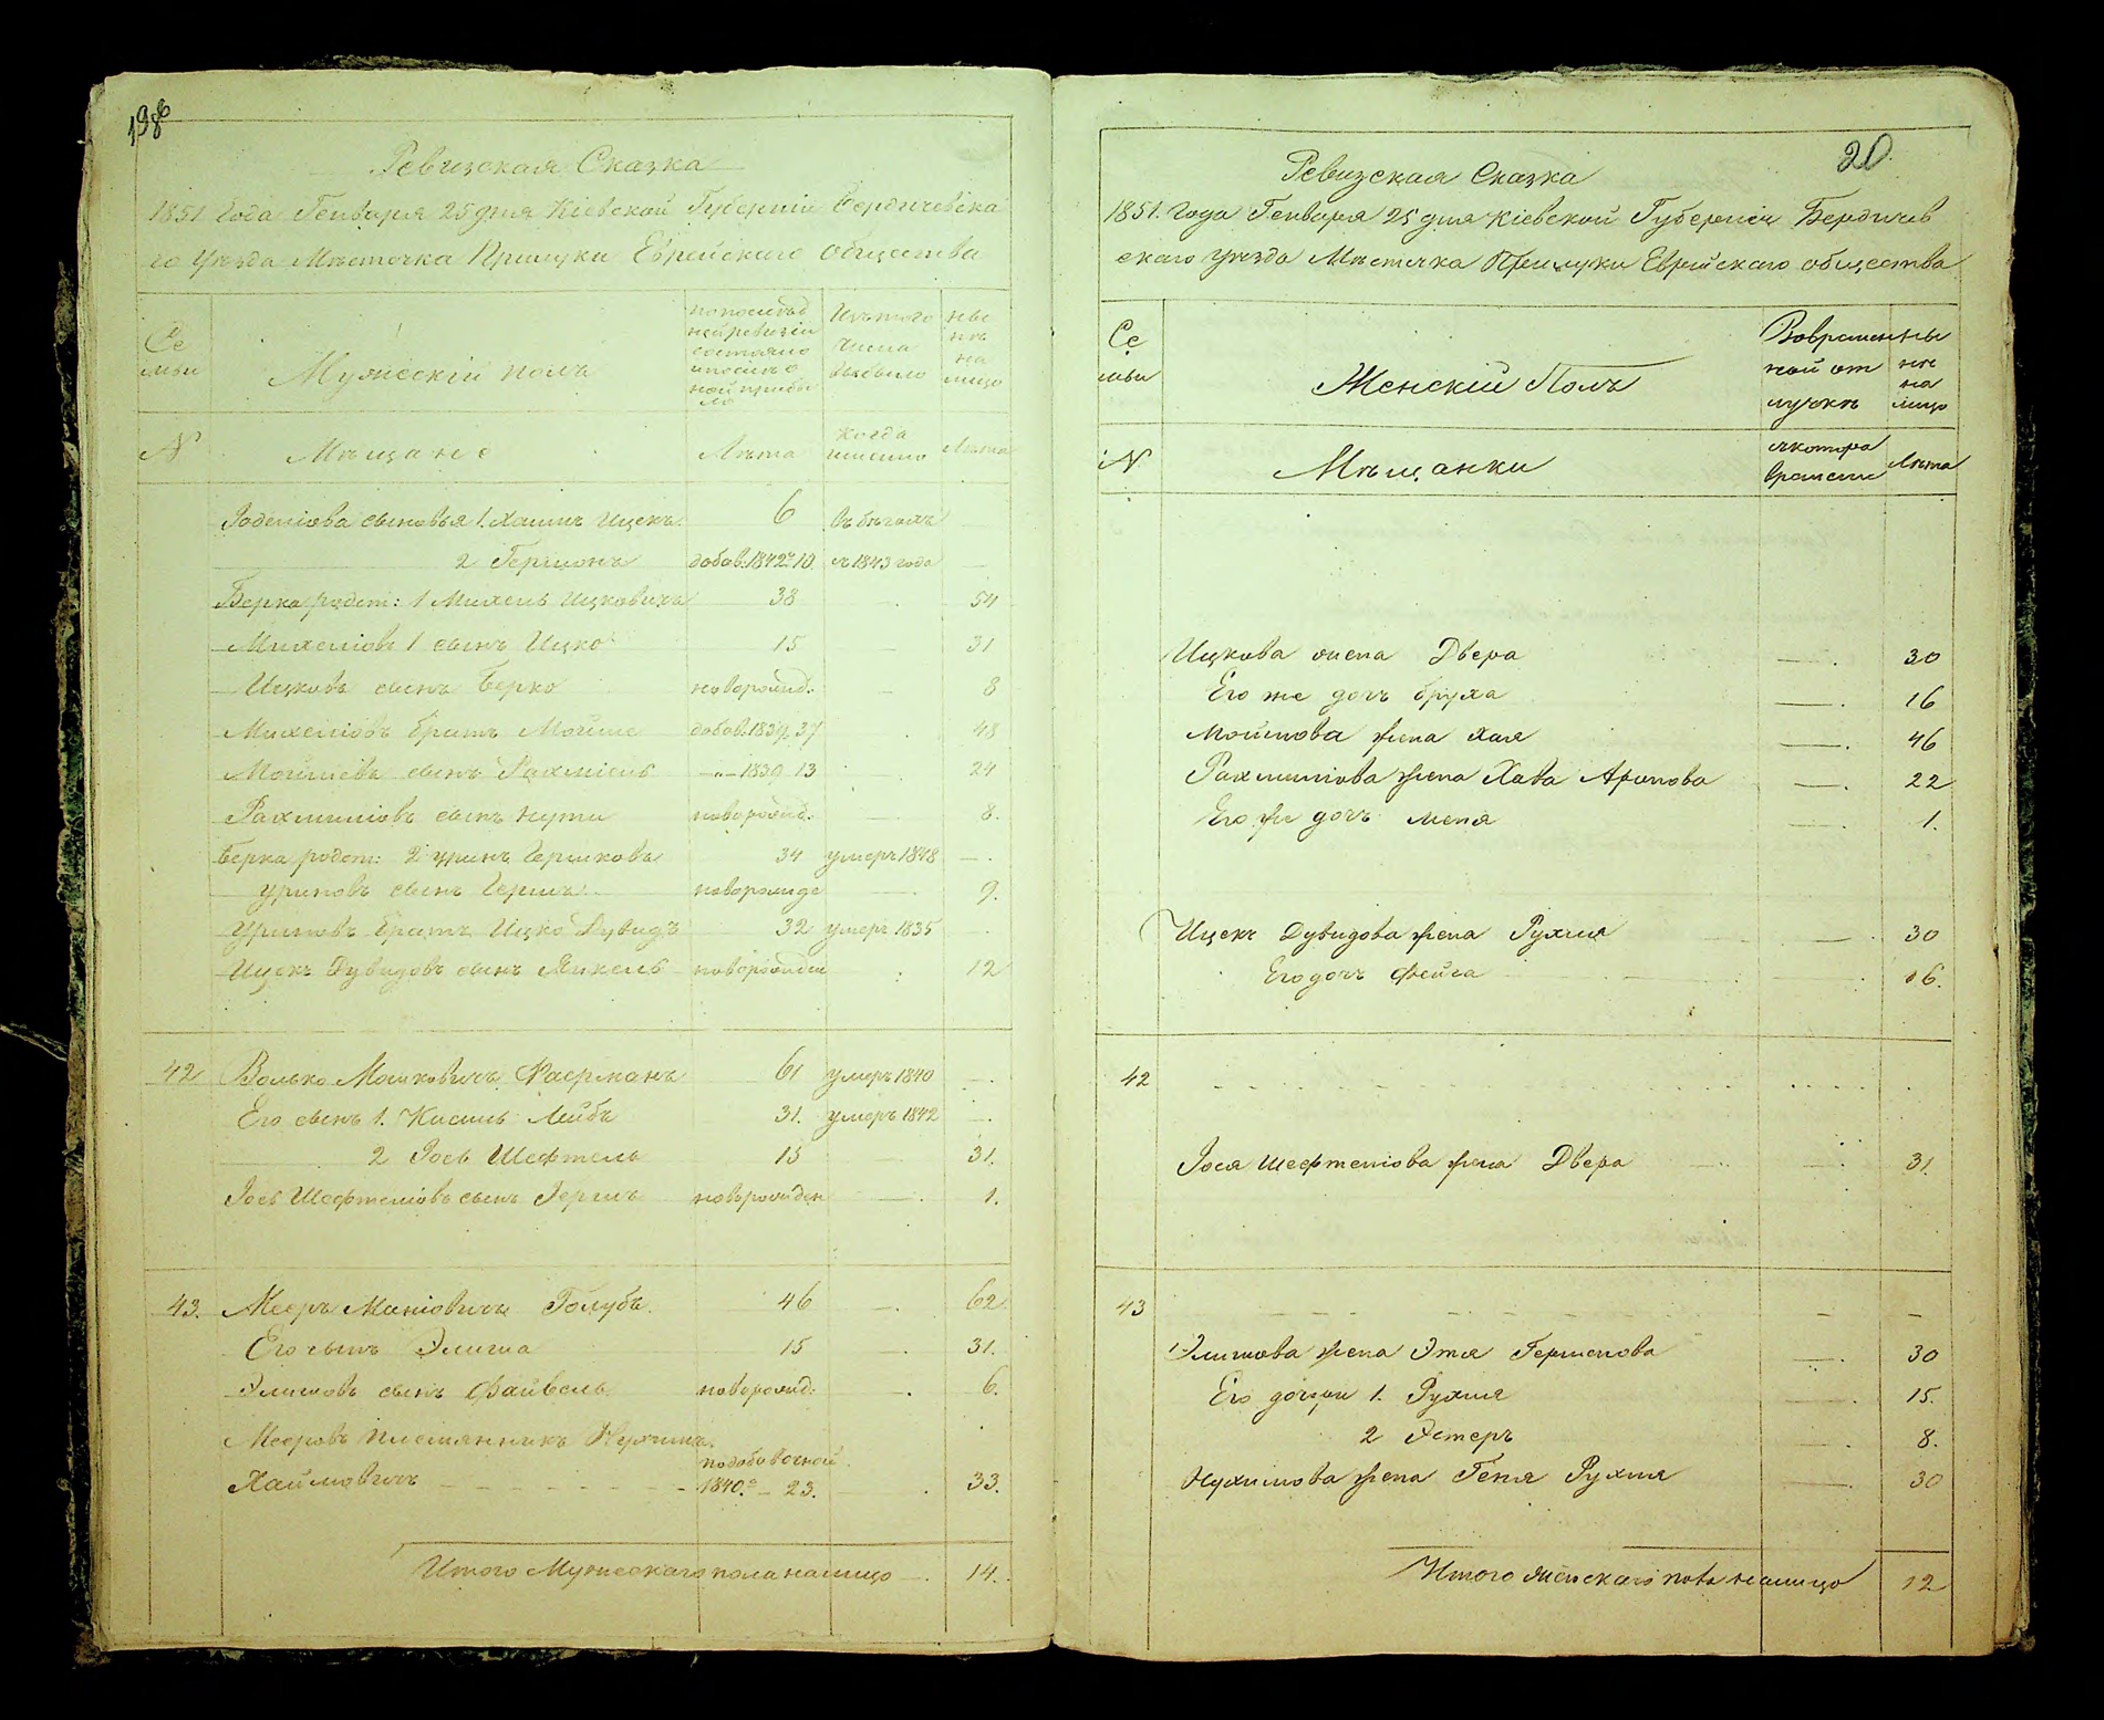 198
Ревизская Сказка
1851 Года Генваря 25 дня Кіевской Губерніи Бердичевска
го Уѣзда Мѣстечка Прилуки Еврейскаго общества
Се
мьи
Мужескій полъ
по послѣд
ней ревизіи
состояло
и послѣ о
ной прибы
ло
Изъ того
числа
выбыло
ны
нѣ
на
лицо
N
Мѣщане
Лѣта
когда
именно
Лѣта
сыновья 1. Хаимъ Ицекъ 6 въ бѣгахъ
2 Гершонъ добав: 1842 г 10 съ 1843 года —
Берка родст: 1 Михель Ицковичъ 38 — 54
Михеліовъ 1 сынъ Ицко 15 — 31
Ицковъ сынъ Берко новорожд: — 8
Михеліовъ братъ Мойше добав: 1839 37 48
Мойшевъ сынъ Рахміель —"— 1839 13 24
Рахмиліовъ сынъ Нути новорожд: — 8.
Берка родст: 2 Уринъ Гершковъ 34 умеръ 1848 —
Уриновъ сынъ Гершъ новорожде — 9.
Уриновъ братъ Ицко Дувидъ 32 умеръ 1835 —
Ицекъ Дувидовъ сынъ Янкель новорожден 12
42 Волько Мошковичъ 61 умеръ 1840 —
Его сынъ 1. Кисиль Лейбъ 31. умеръ 1842 —
2 Іось Шефтель 15 31.
Іось Шефтеліовъ сынъ Гершъ новорожден — 1.
43. Мееръ Маніовичъ Голубъ. 46 — 62
Его сынъ Элиша 15 — 31.
Элишовъ сынъ Файвель новорожд: — 6.
Мееровъ племянникъ Нухимъ
по добавочной
Хаймовичъ 1840.г – 23. 33.
Итого Мужескаго пола налицо — 14.
20
Ревизская Сказка
1851. Года Генваря 25 дня Кіевской Губерніи Бердичев
скаго уѣзда Мѣстечка Прилуки Еврейскаго общества
Се
мьи
Женскій Полъ
Во времен
ной от
лучкѣ
ны
нѣ
на
лицо
N
Мѣщанки
съ котора
времени
Лѣта
Ицкова жена Двера — 30
Его же дочь Бруха — 16
Мойшова жена Хая — 46
Рахмиліова жена Хава Аронова — 22
Его же дочь Меня — 1.
Ицекъ Дувидова жена Рухля — 30
Его дочь Фейга — 16.
42
Іося Шефтеліова жена Двера — 31.
43 — —
Элишова жена Этя Гершенова — 30
Его дочери 1. Рухля — 15.
2 Эстеръ — 8.
Нухимова жена Геня Рухля — 30
Итого женскаго пола налицо 12